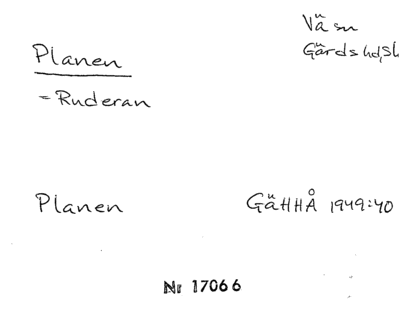 Vä sn
Planen
Gärds hd, Sk
=Ruderan
Planen GäHHÅ 1949:40
Nr 17066